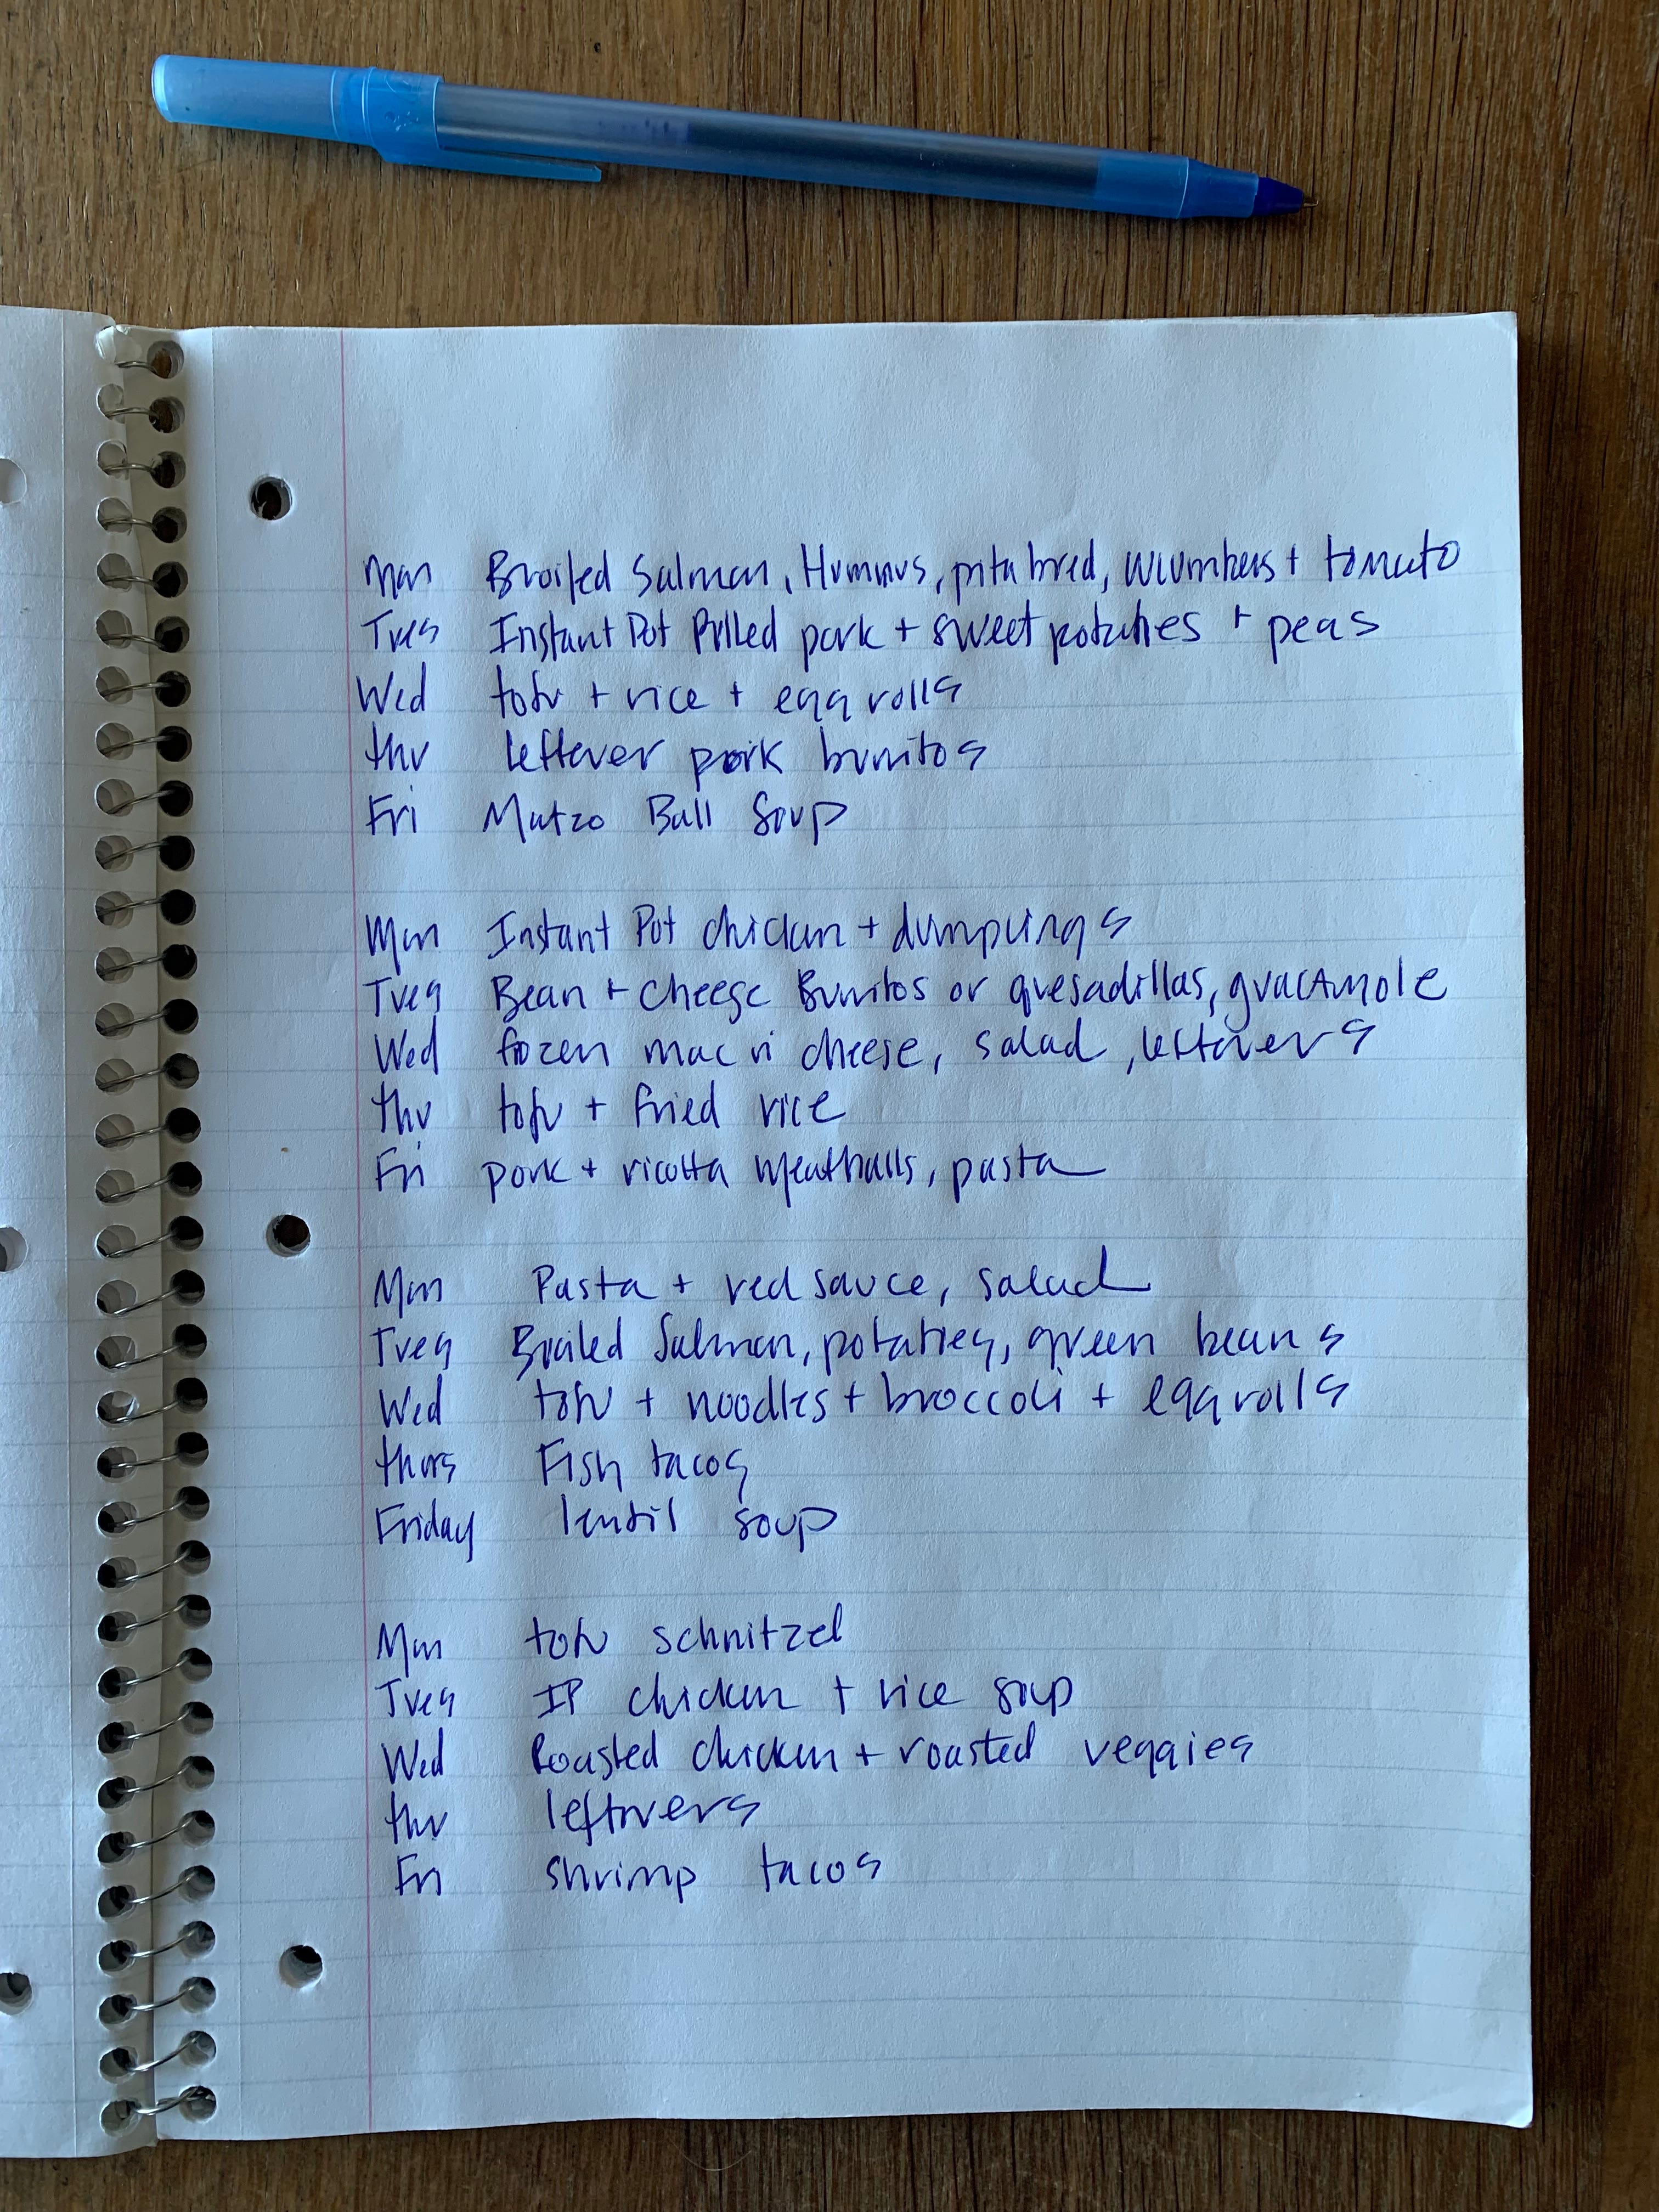 Mon Broiled Salmon, Hummus, pita bred, cucumbers + tomato
Tues Instant Pot Pulled pork + sweet potatoes + peas
Wed tofu + rice + egg rolls
thu leftover pork burritos
Fri Matzo Ball Soup
Mon Instant Pot chicken + dumplings
Tues Bean + Cheese Burritos or quesadillas, guacamole
Wed frozen mac n cheese, salad, leftovers
thu tofu + fried rice
Fri pork + ricotta meatballs, pasta
Mon Pasta + red sauce, salad
Tues Broiled Salmon, potatoes, green beans
Wed tofu + noodles + broccoli + egg rolls
thurs Fish tacos
Friday lentil soup
Mon tofu schnitzel
Tues IP chicken + rice soup
Wed Roasted chicken + roasted veggies
thu leftovers
Fri shrimp tacos